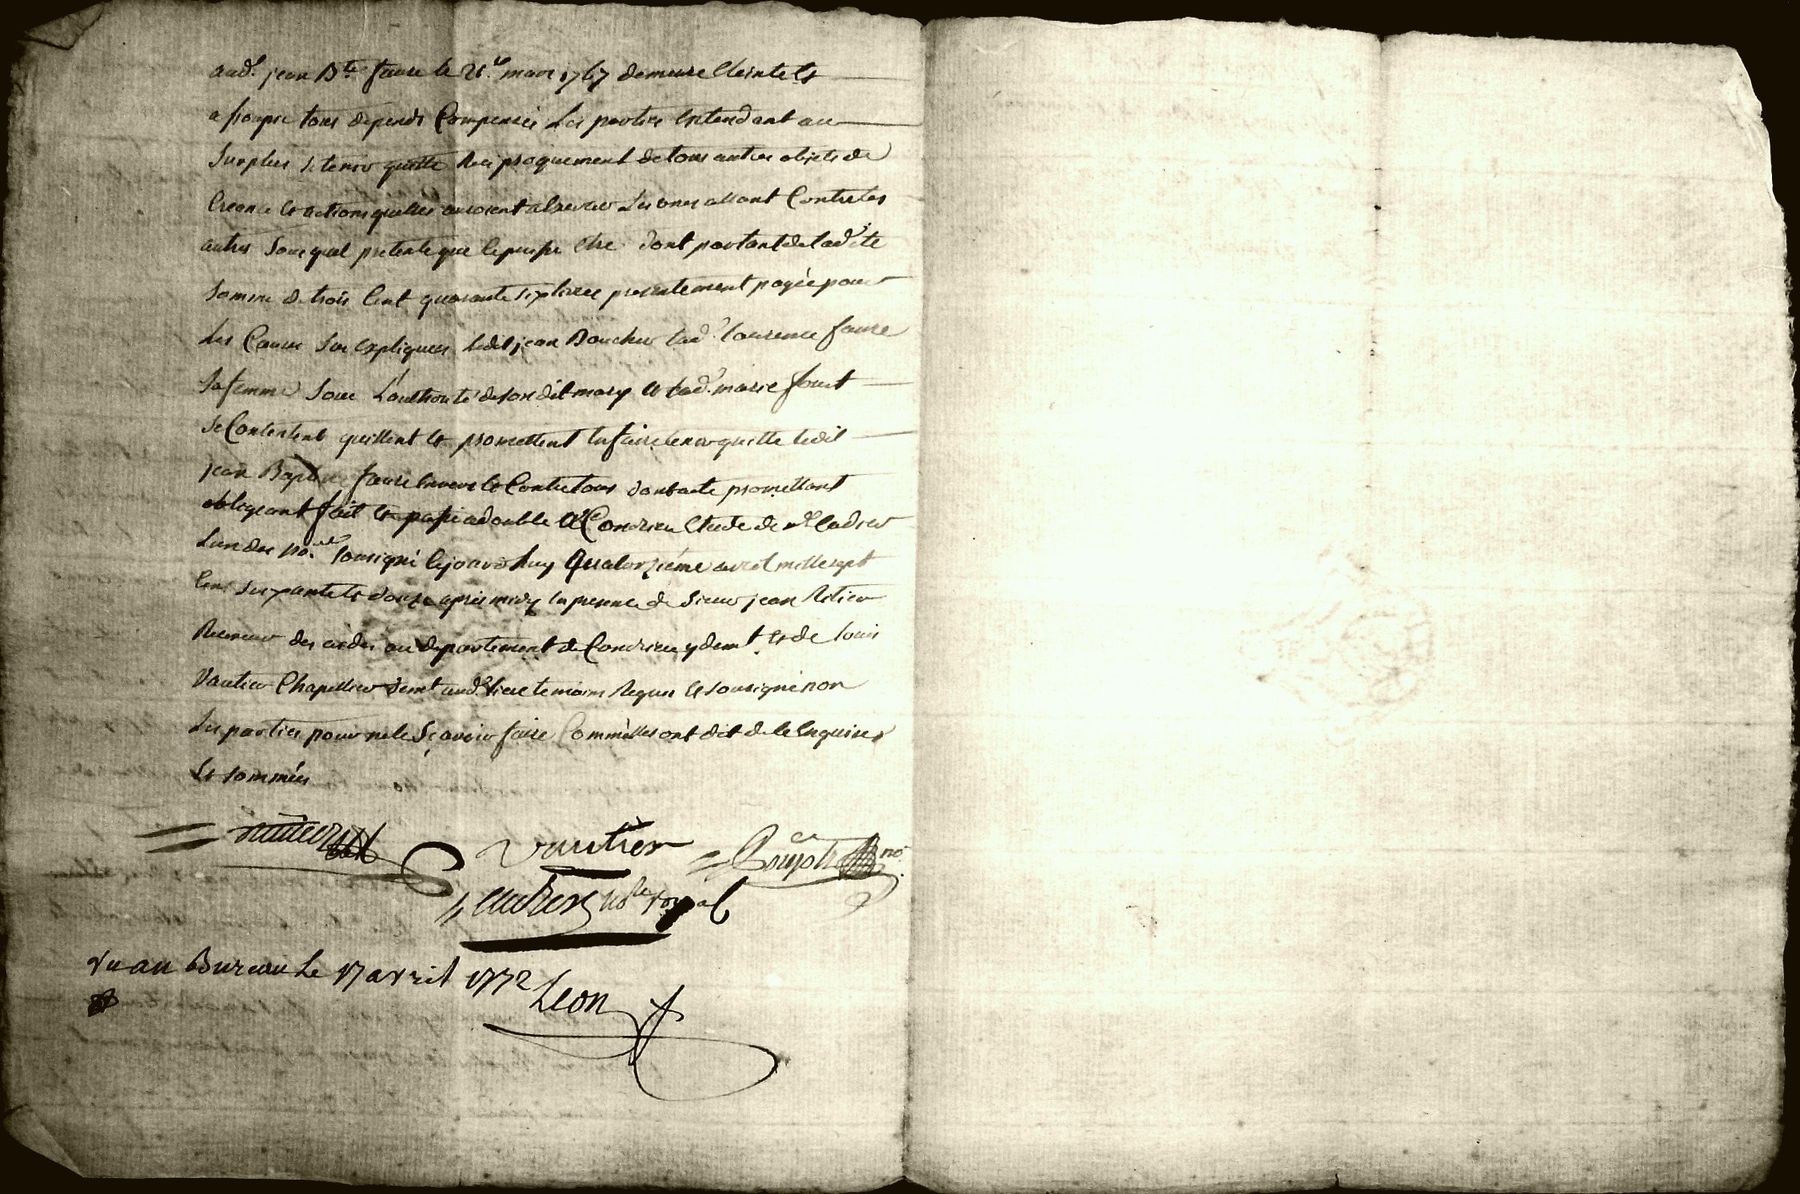 aud.t jean B.te faure le 21.e mars 1767 demeure eteinte et
assoupie tous depends Compensés Les parties entendant au
Surplus se tenir quitte Reciproquement de tous autres objets de
Creance et actions quelles auroient a Exercer Les unes allant Contre les
autres Sous quel pretexte que le puisse etre dont partant de lad.e
Somme de trois Cent quarante sept livres presentement payée pour
Les Causes Sus expliquées ledit jean Boucher lad.e laurence faure
Sa femme Sous L'authorité de son dit mary et lad.e marie faure
se Contentent quittent et promettent en faire tenir quitte ledit
jean Baptiste faure Envers et Contre tous dont acte promettant
obligeant fait et passé a double a Condrieu Etude de m.e
L'un des no.res soussigné cejourd'huy Quatorzième avril mille sept
Cent soixante et douze après midy en presence de Sieur jean
Receveur des aides au departement de Condrieu y demt. et de louis
Vautier Chapellier demt aud. lieu temoins Requis et soussigné non
Les parties pour ne le Sçavoir faire Comm'elles ont dit de ce Enquises
Et sommées
Vautier
no.re Royal
Vu au Bureau Le 17 avril 1772
Leon